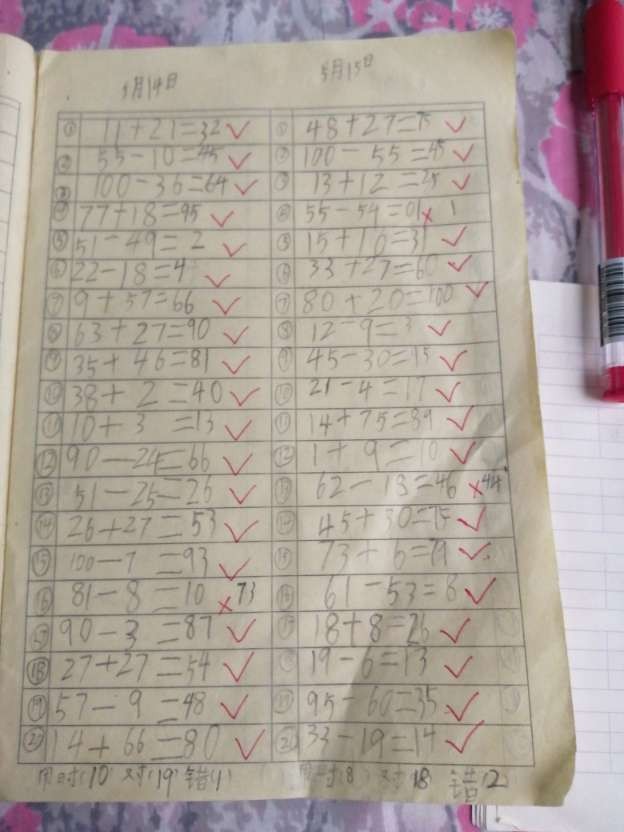 5月14日
① 11+21=32
② 55-10=45
③ 100-36=64
④ 77+18=95
⑤ 51-49=2
⑥ 22-18=4
⑦ 9+57=66
⑧ 63+27=90
⑨ 35+46=81
⑩ 38+2=40
⑪ 10+3=13
⑫ 90-24=66
⑬ 51-25=26
⑭ 26+27=53
⑮ 100-7=93
⑯ 81-8=10 ×73
⑰ 90-3=87
⑱ 27+27=54
⑲ 57-9=48
⑳ 14+66=80
用时:10 对:19 错:1
5月15日
① 48+27=75
② 100-55=45
③ 13+12=25
④ 55-54=01 × 1
⑤ 15+16=31
⑥ 33+27=60
⑦ 80+20=100
⑧ 12-9=3
⑨ 45-30=15
⑩ 21-4=17
⑪ 14+75=89
⑫ 1+9=10
⑬ 62-18=46 ×44
⑭ 45+30=75
⑮ 73+6=79
⑯ 61-53=8
⑰ 18+8=26
⑱ 19-6=13
⑲ 95-60=35
⑳ 33-19=14
用时:8 对:18 错:2